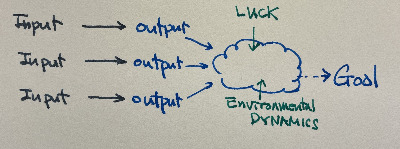 LUCK
Input output
Input output
Goal
Input output
Environmental
DYNAMICS